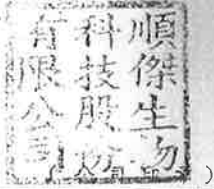 順傑生物
科技股份
有限公司